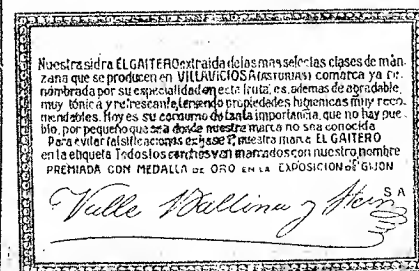 Nuestra sidra EL GAITERO extraida de las mas selectas clases de man-
zana que se producen en VILLAVICIOSA (ASTURIAS) comarca ya re-
nombrada por su especialidad en esta fruta, es, ademas de agradable,
muy tónica y refrescante, teniendo propiedades higienicas muy reco-
mendables. Hoy es su consumo de tanta importancia, que no hay pue-
blo, por pequeño que sea donde nuestra marca no sea conocida
Para evitar falsificaciones exijase nuestra marca EL GAITERO
en la etiqueta Todos los corchos van marcados con nuestro nombre
PREMIADA CON MEDALLA DE ORO EN LA EXPOSICION DE GIJON
Valle Ballina y Hern S A